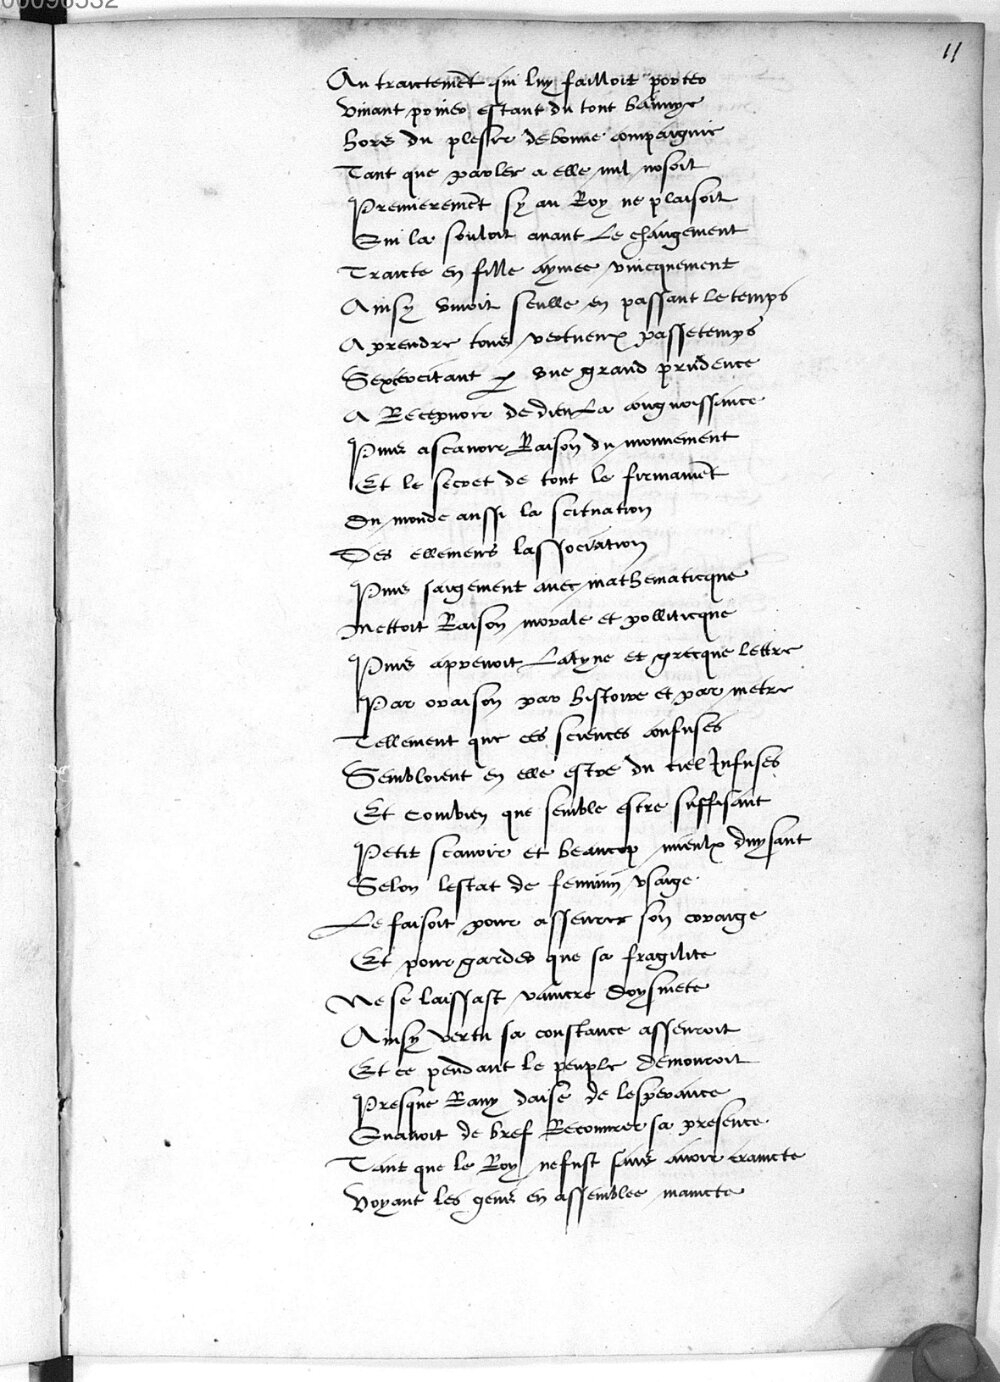 11
Au traictemẽt qui luy failloit porter
Vivant estant du tout bannye
hors du plesir de bonne compaignie
Tant que parler a elle nul nosoit
Premieremẽt sy au Roy ne plaisoit
Qui la souloit avant Le changement
Traicte en fille aymee vnicquement
Ainsy vivoit seulle en passant le temps
A prendre tous vertueux passetemps
Sexercitant p vne grand prudence
A Recepvoir de dieu La congnoissance
Puis ascavoir Raison du mouvement
Et le secret de tout le firmamẽt
Du monde aussi la scituation
Des ellemens lassociation
Puis saigement avec mathematicque
Mettoit Raison moralle et pollitique
Puis apprenoit Latyne et grecque lettre
Par oraison par histoire et par metre
Tellement que ces sciences confuses
Sembloient en elle estre du ciel Infuses
Et combien que semble estre suffisant
Petit scavoir et beaucop mieulx duysant
Selon lestat de feminin vsaige
Le faisoit pour asseurer son coraige
Et pour garder que sa fragilite
Ne se laissast vaincre
Ainsy vertu sa constance asseuroit
Et ce pendant le peuple demouroit
Presque Rauy daise de lesperance
Quavoit de bref Recouvrer sa presence
Tant que le Roy nefust sans avoir craincte
Voyant les gens en assemblee maincte